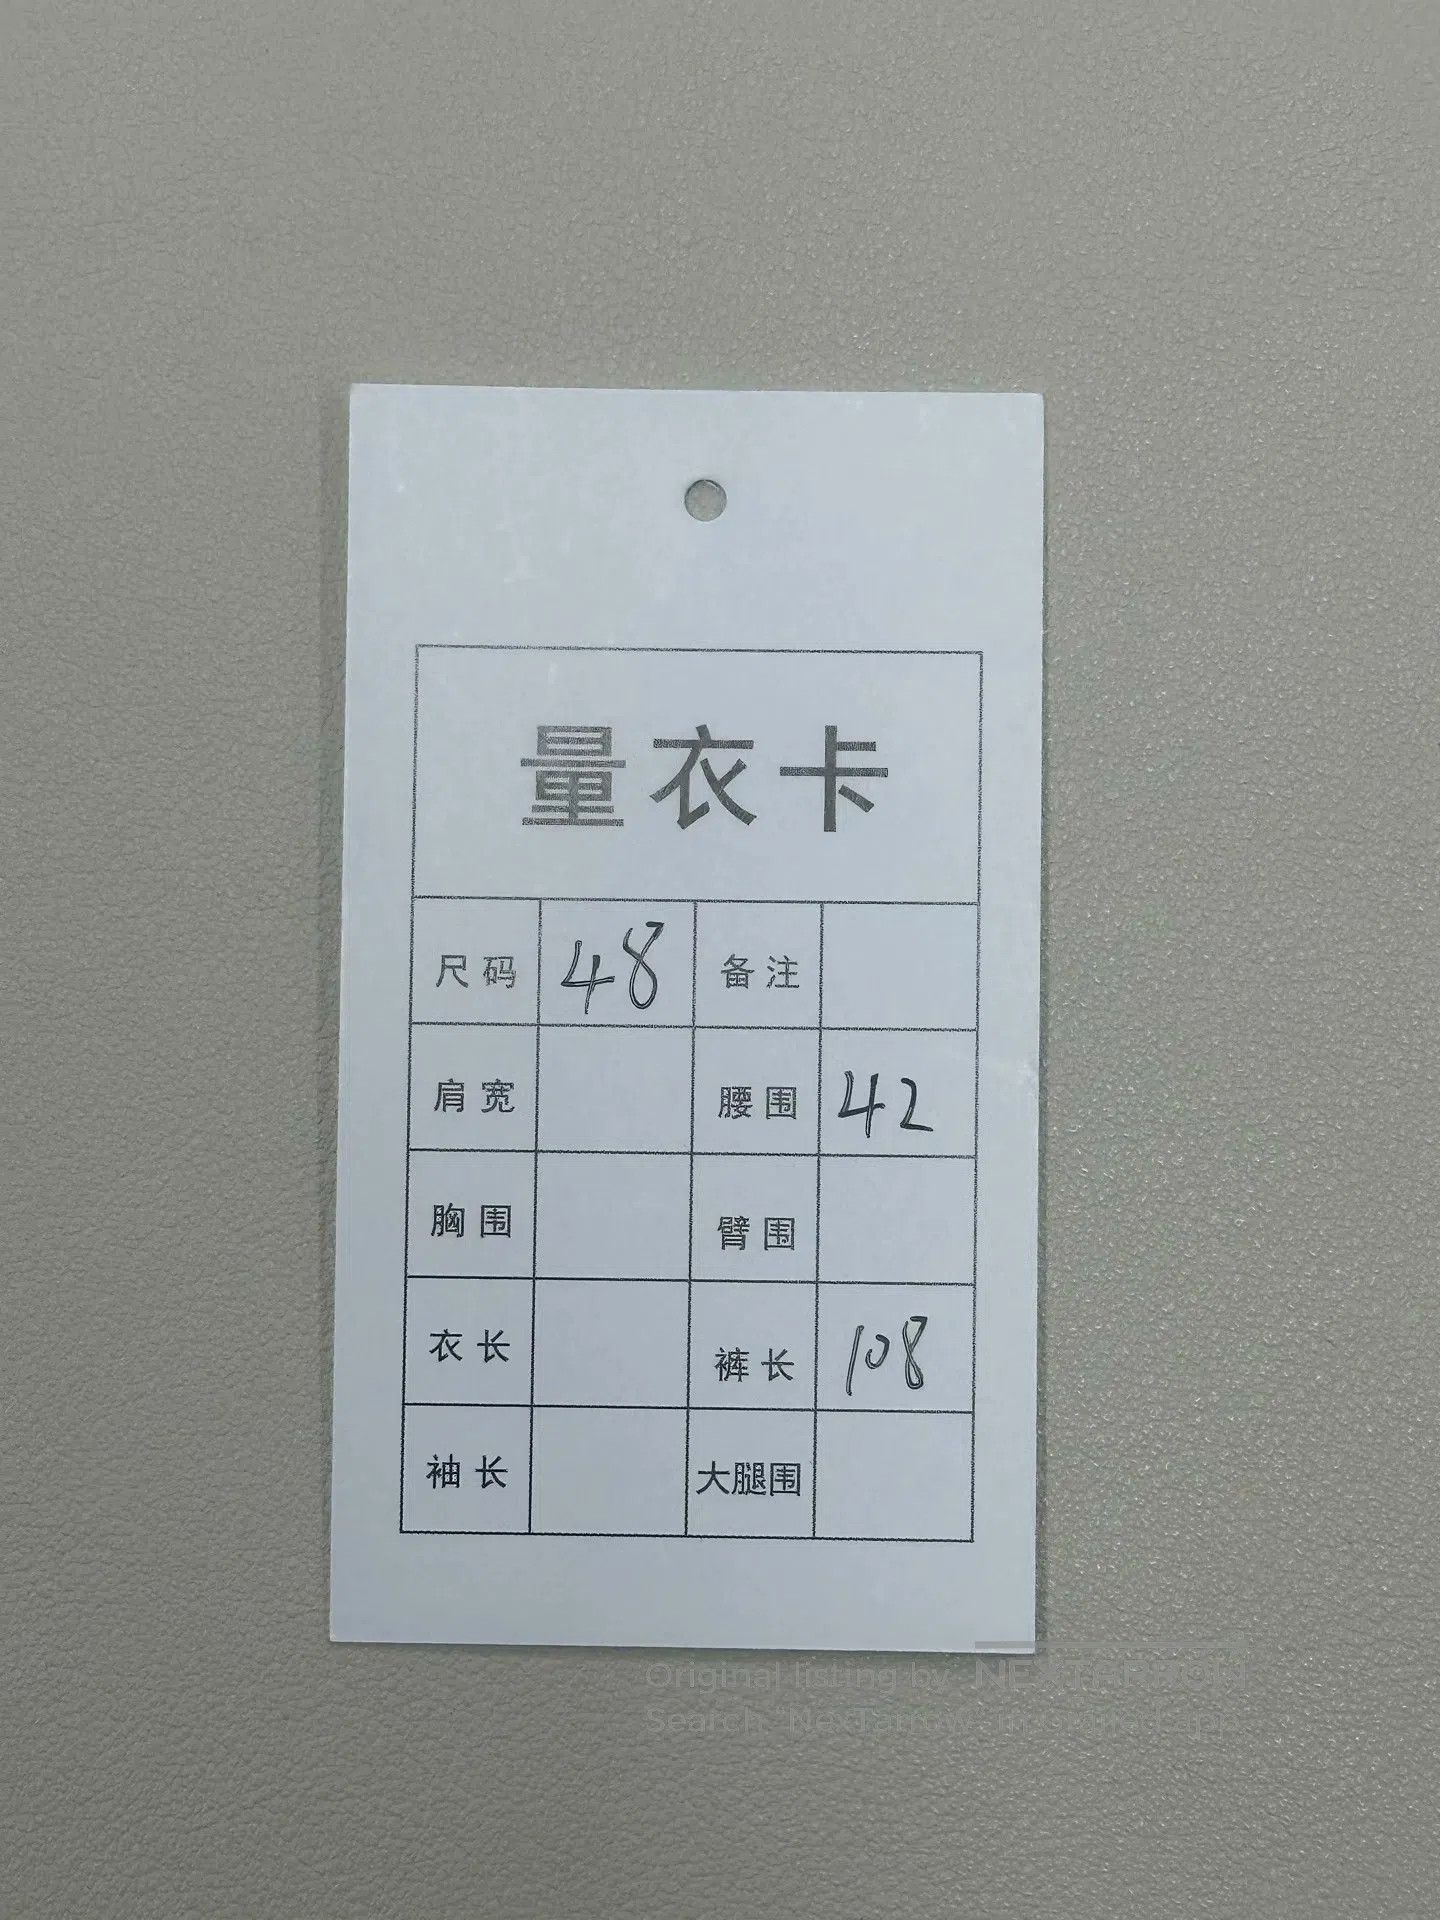 量衣卡
尺码 48 备注
肩宽 腰围 42
胸围 臂围
衣长 裤长 108
袖长 大腿围
Original listing by NEXTARROW
Search "NexTarrow" in Grailed app